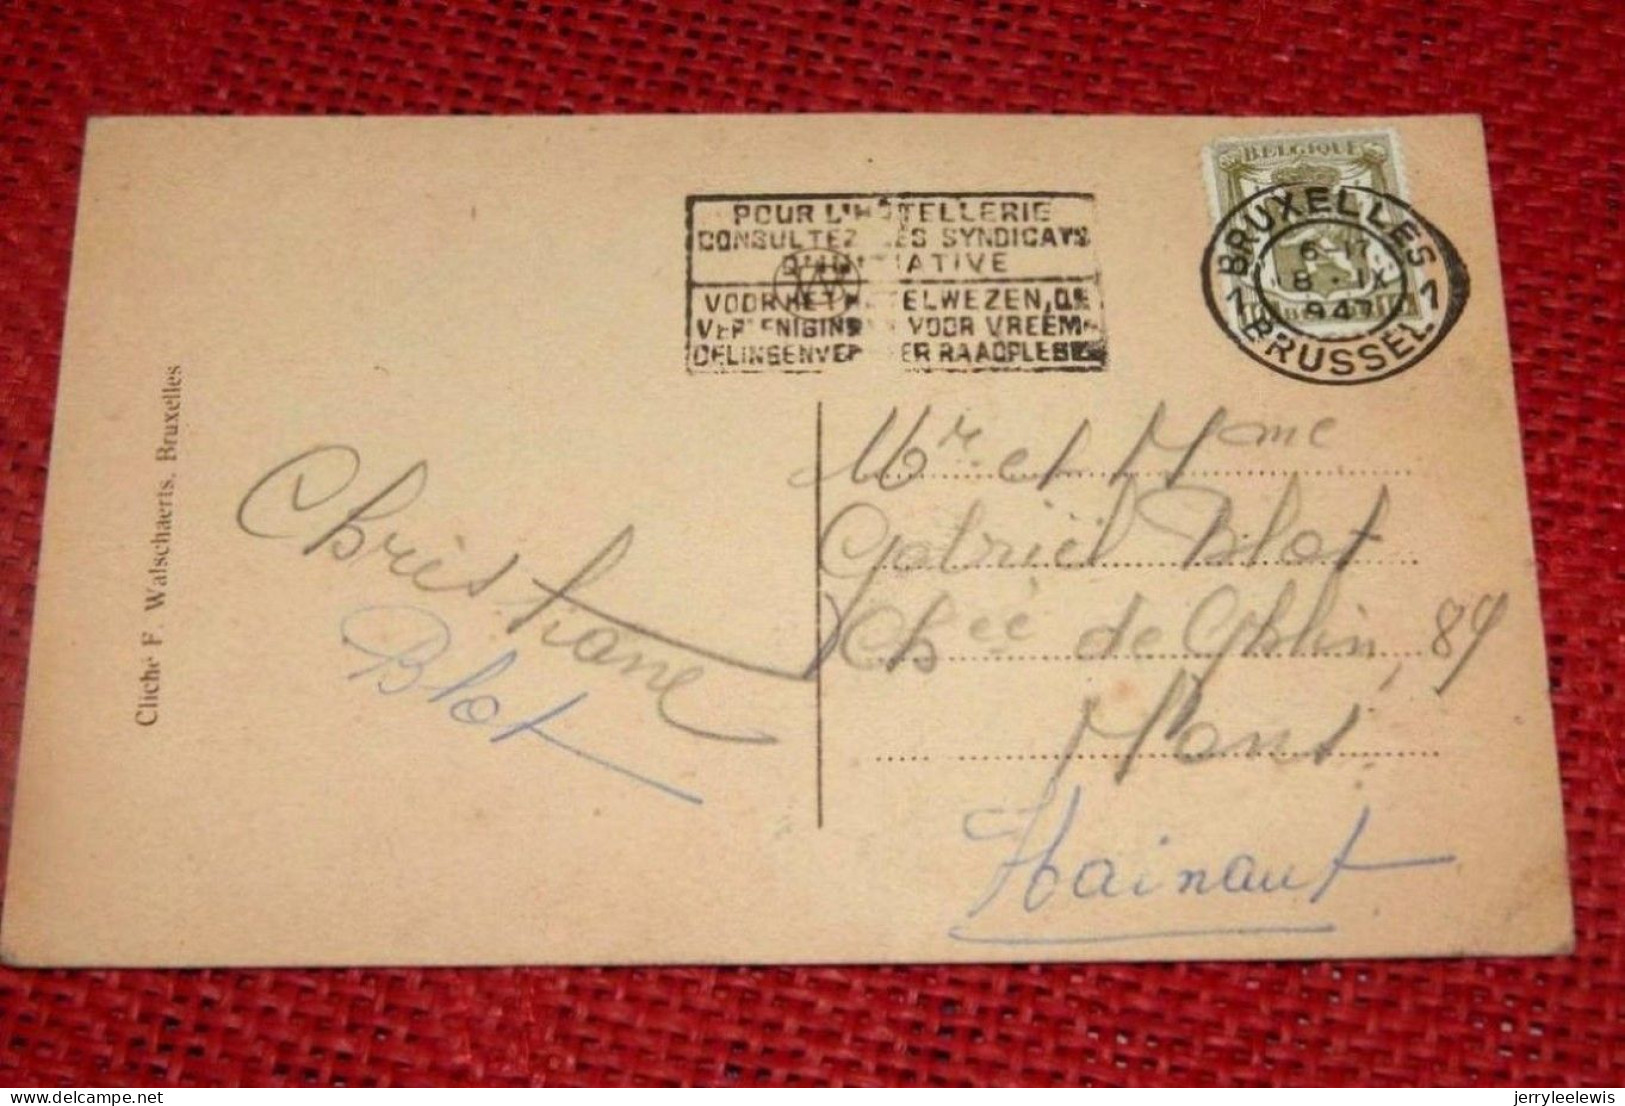 POUR L'HÔTELLERIE
CONSULTEZ LES SYNDICATS
D'INITIATIVE
VOOR HET HOTELWEZEN, DE
VEREENIGINGEN VOOR VREEM-
DELINGENVERKEER RAADPLEGEN
BELGIQUE
BRUXELLES
1 1
8 - IX
947
BRUSSEL
Cliché F. Walschaerts, Bruxelles
Christiane
Blot
Mr et Mme
Gabriël Blot
Chée de Ghlin, 89
Mons.
Hainaut
jerryleelewis